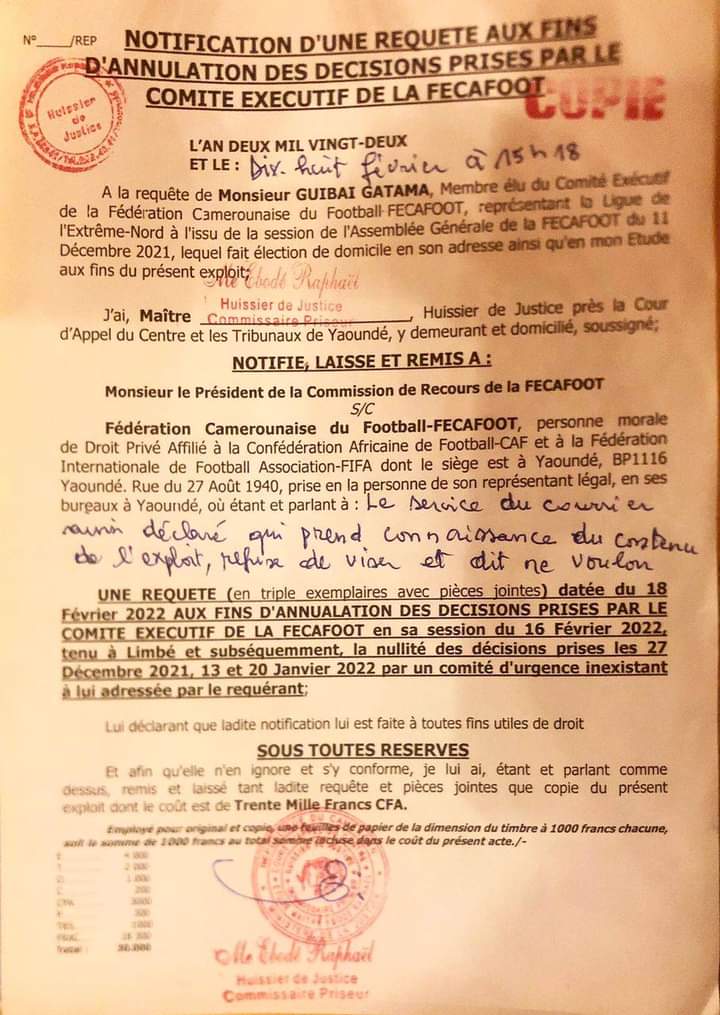 N°_____/REP
NOTIFICATION D'UNE REQUETE AUX FINS
D'ANNULATION DES DECISIONS PRISES PAR LE
COMITE EXECUTIF DE LA FECAFOOT
COPIE
Huissier
de
Justice
L'AN DEUX MIL VINGT-DEUX
ET LE : Dix-huit février à 15h18
A la requête de Monsieur GUIBAI GATAMA, Membre élu du Comité Exécutif
de la Fédération Camerounaise du Football-FECAFOOT, représentant la Ligue de
l'Extrême-Nord à l'issu de la session de l'Assemblée Générale de la FECAFOOT du 11
Décembre 2021, lequel fait élection de domicile en son adresse ainsi qu'en mon Etude
aux fins du présent exploit;
Me Ebodé Raphaël
Huissier de Justice
Commissaire Priseur
J'ai, Maître ____________________, Huissier de Justice près la Cour
d'Appel du Centre et les Tribunaux de Yaoundé, y demeurant et domicilié, soussigné;
NOTIFIE, LAISSE ET REMIS A :
Monsieur le Président de la Commission de Recours de la FECAFOOT
S/C
Fédération Camerounaise du Football-FECAFOOT, personne morale
de Droit Privé Affilié à la Confédération Africaine de Football-CAF et à la Fédération
Internationale de Football Association-FIFA dont le siège est à Yaoundé, BP1116
Yaoundé. Rue du 27 Août 1940, prise en la personne de son représentant légal, en ses
bureaux à Yaoundé, où étant et parlant à : Le service du courrier
ainsi déclaré qui prend connaissance du contenu
de l'exploit, refuse de viser et dit ne vouloir
UNE REQUETE (en triple exemplaires avec pièces jointes) datée du 18
Février 2022 AUX FINS D'ANNUALATION DES DECISIONS PRISES PAR LE
COMITE EXECUTIF DE LA FECAFOOT en sa session du 16 Février 2022,
tenu à Limbé et subséquemment, la nullité des décisions prises les 27
Décembre 2021, 13 et 20 Janvier 2022 par un comité d'urgence inexistant
à lui adressée par le requérant;
Lui déclarant que ladite notification lui est faite à toutes fins utiles de droit
SOUS TOUTES RESERVES
Et afin qu'elle n'en ignore et s'y conforme, je lui ai, étant et parlant comme
dessus, remis et laissé tant ladite requête et pièces jointes que copie du présent
exploit dont le coût est de Trente Mille Francs CFA.
Employé pour original et copie, une feuilles de papier de la dimension du timbre à 1000 francs chacune,
soit la somme de 1000 francs au total somme incluse dans le coût du présent acte./-
4 000
2 000
1 000
200
30.000
Me Ebodé Raphaël
Huissier de Justice
Commissaire Priseur